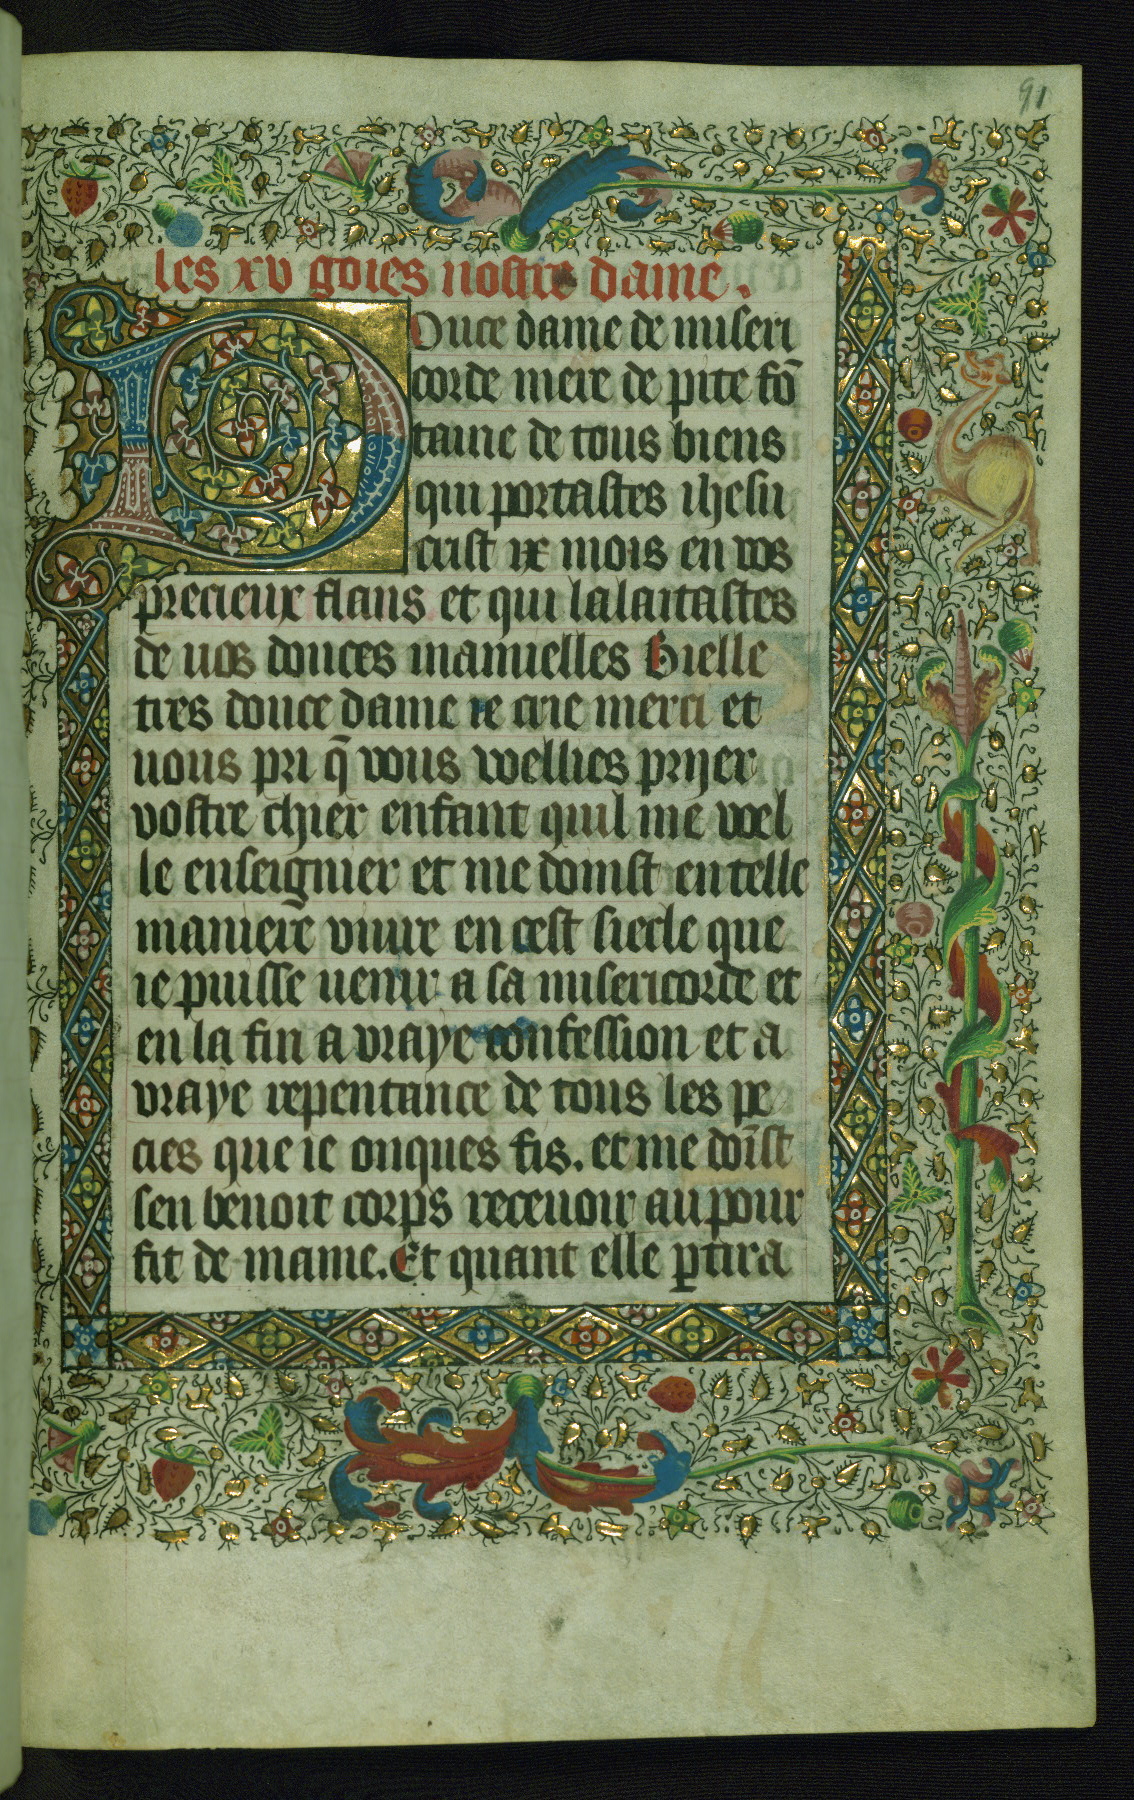 91
les xv goies nostre dame.
Douce dame de miseri
corde mere de pite fō
taine de tous biens
qui portastes ihesu
crist ix mois en vos
precieux flans et qui lalaitastes
de uos douces mamielles Bielle
tres douce dame ie crie merci et
uous pri q̄ vous wellies pryer
vostre chier enfant quil me woel
le enseignier et me doinst en telle
maniere viure en cest siecle que
ie puisse uenir a sa misericorde et
en la fin a vraye confession et a
vraye repentance de tous les pe
cies que ie onques fis. et me doīst
sen benoit corps receuoir au pour
fit de mame. Et quant elle ꝑtira